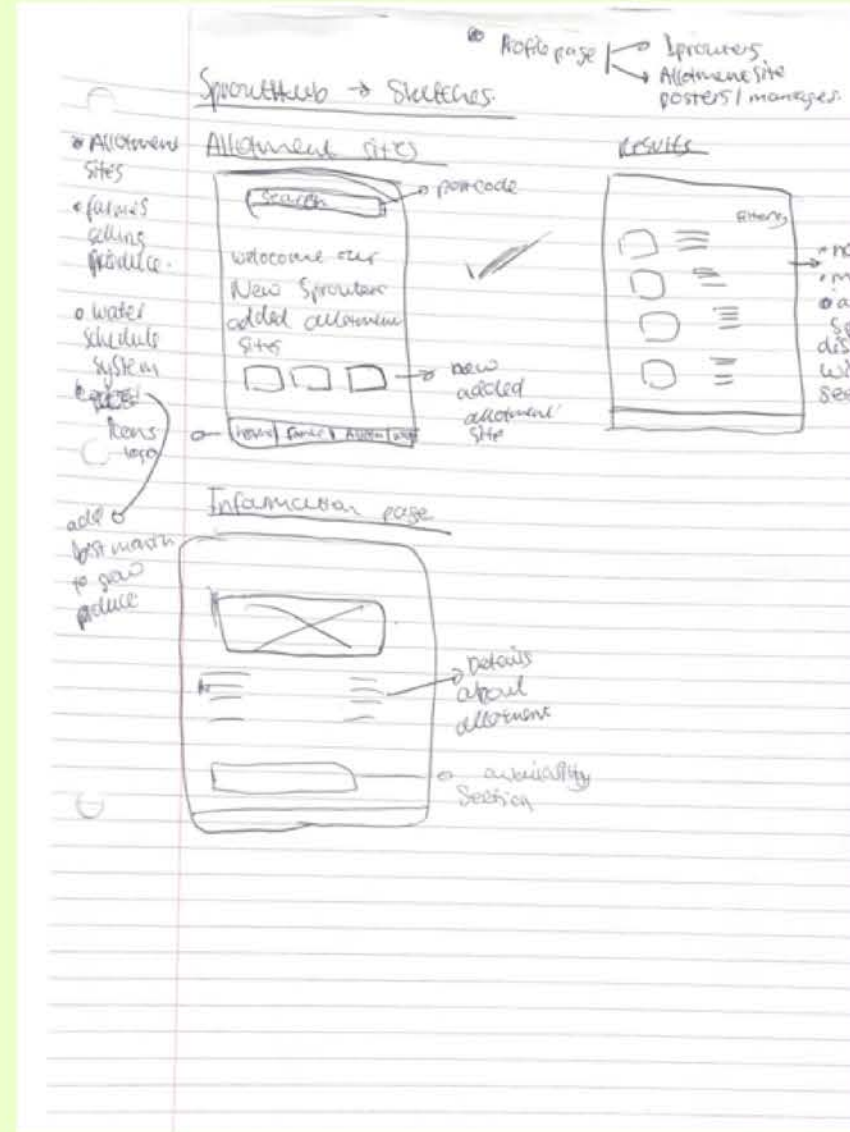 Profile page
Sprouters
Allotment site
posters / manages.
SproutHub → Sketches.
Allotment
sites
farmers
selling
produce.
water
schedule
system
Icons
logo
add
best month
to grow
produce
Allotment sites
Search
postcode
welocome our
New Sprouters
added allotment
sites
new
added
allotment
site
Home
Results
filtering
Information page
Details
about
allotment
availability
Section